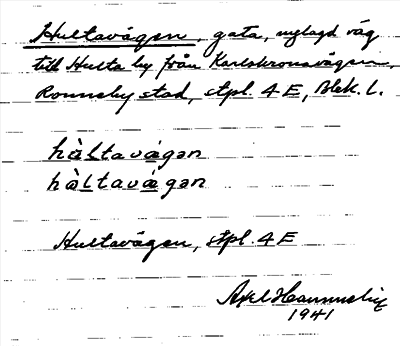 Hultavägen, gata, nylagd väg
till Hulta by från Karlskronavägen,
Ronneby stad, stpl. 4 E, Blek. l.
hàltavágən
hàltavàgən
Hultavägen, stpl. 4 E
Axel
1941